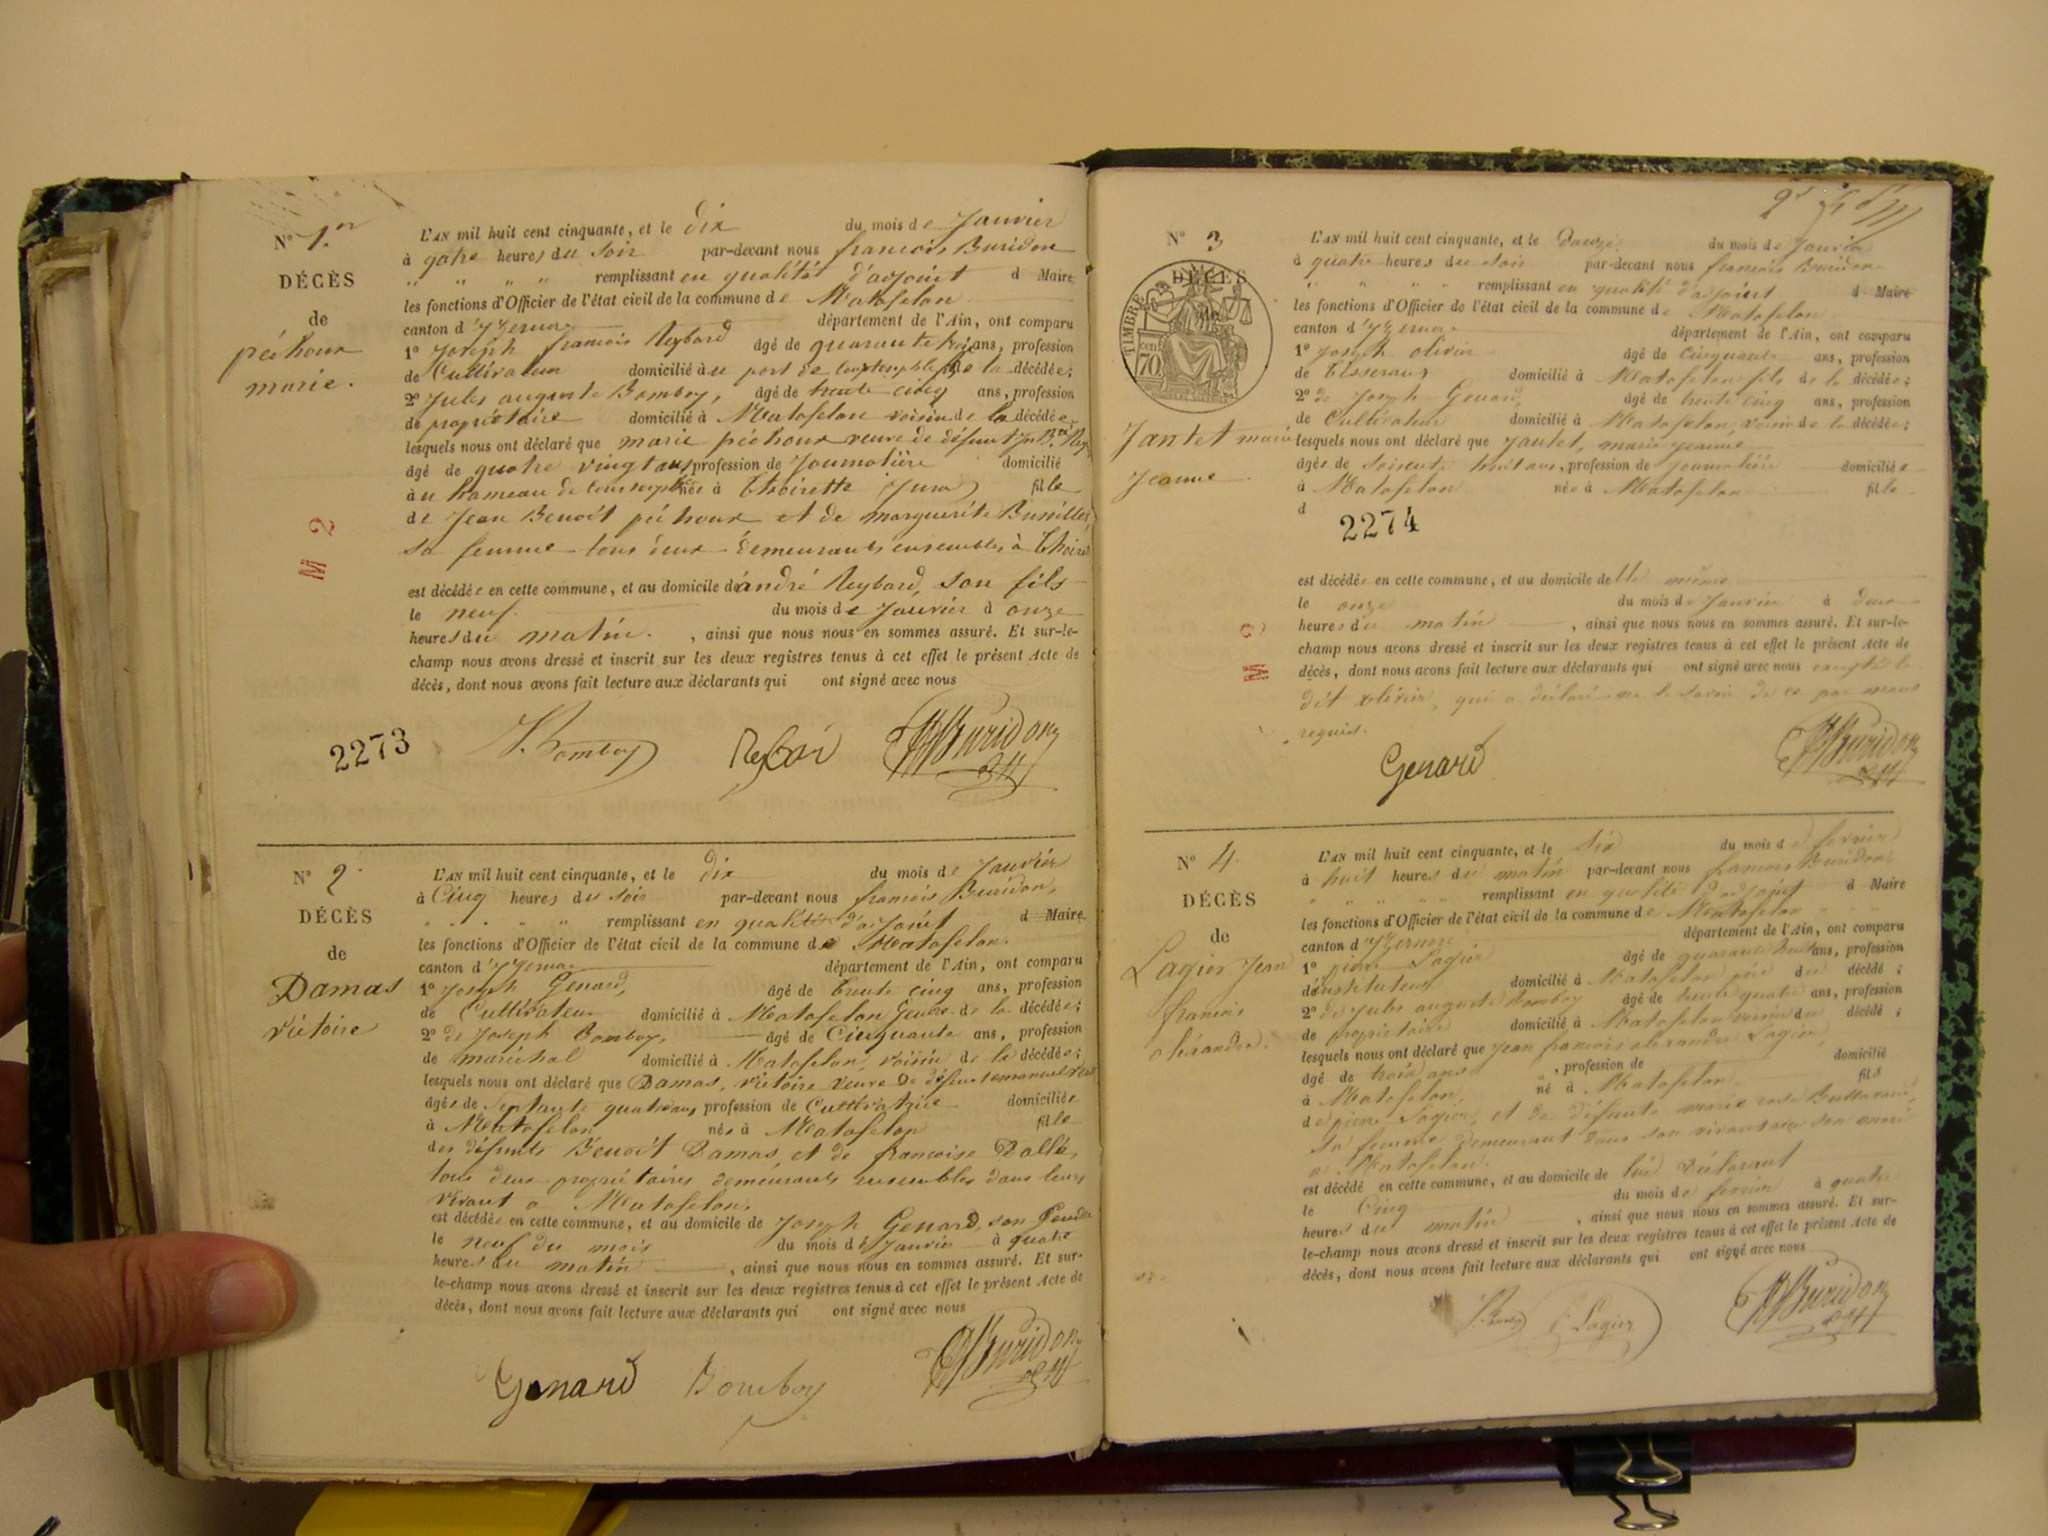 N° 1.er
DÉCÈS
de
péchoux
marie.
L'AN mil huit cent cinquante, et le dix du mois de Janvier
à qatre heures du soir par-devant nous francois Buridon
" " " " remplissant en qualités d'adjoint d Maire
les fonctions d'Officier de l'état civil de la commune de Matafelon
canton d'Yzernore département de l'Ain, ont comparu
1° Joseph francois Reybard âgé de quarante trois ans, profession
de Cultivateur domicilié à au port de de la décédée;
2° Jules auguste Bomboy, âgé de trente cinq ans, profession
de propriétaire domicilié à Matafelon voisin de la décédée
lesquels nous ont déclaré que marie péchoux veuve de défunt
âgé de quatre vingt ans profession de Journalière domicilié
au hameau de née à Thoirette (Jura) fille
de Jean Benoit péchoux et de marguerite
sa femme tous deux demeurants ensembles à
est décédée en cette commune, et au domicile d'andré Reybard, son fils
le neuf du mois de Janvier à onze
heures du matin. , ainsi que nous nous en sommes assuré. Et sur-le-
champ nous avons dressé et inscrit sur les deux registres tenus à cet effet le présent Acte de
décès, dont nous avons fait lecture aux déclarants qui ont signé avec nous
M 2
2273 Bomboy Reybard Buridon
N° 2
DÉCÈS
de
Damas
victoire
L'AN mil huit cent cinquante, et le dix du mois de Janvier
à Cinq heures du soir par-devant nous francois Buridon,
" " " " remplissant en qualités d'adjoint d Maire
les fonctions d'Officier de l'état civil de la commune de Matafelon.
canton d'Yzernore département de l'Ain, ont comparu
1° Joseph Genard, âgé de trente cinq ans, profession
de Cultivateur domicilié à Matafelon Gendre de la décédée;
2° de Joseph Bomboy, âgé de Cinquante ans, profession
de maréchal domicilié à Matafelon, voisin de la décédée;
lesquels nous ont déclaré que Damas, victoire veuve de défunt emanuel
âgée de septante quatre ans profession de Cultivatrice domiciliée
à Matafelon née à Matafelon fille
des défunts Benoit Damas, et de francoise
tous deux propriétaires demeurants ensembles dans leurs
vivant a Matafelon,
est décédée en cette commune, et au domicile de Joseph Genard, son Gendre
le neuf du mois du mois de Janvier à quatre
heures du matin , ainsi que nous nous en sommes assuré. Et sur-
le-champ nous avons dressé et inscrit sur les deux registres tenus à cet effet le présent Acte de
décès, dont nous avons fait lecture aux déclarants qui ont signé avec nous
Genard Bomboy Buridon
N° 3
DÉCÈS
de
TIMBRE
cent. 70
Jantet marie
Jeanne
L'AN mil huit cent cinquante, et le douze du mois de Janvier
à quatre heures du soir par-devant nous francois Buridon
" " " " remplissant en qualité d'adjoint d Maire
les fonctions d'Officier de l'état civil de la commune de Matafelon
canton d'Yzernore département de l'Ain, ont comparu
1° Joseph olivier âgé de Cinquante ans, profession
de Tisserand domicilié à Matafelon fils de la décédée;
2° de Joseph Genard, âgé de trente cinq ans, profession
de Cultivateur domicilié à Matafelon, voisin de la décédée;
lesquels nous ont déclaré que Jantet, marie Jeanne
âgée de soixante huit ans, profession de journalière domiciliée
à Matafelon née à Matafelon fille
d
2274
est décédée en cette commune, et au domicile de elle même
le onze du mois de Janvier à deux
heures du matin , ainsi que nous nous en sommes assuré. Et sur-le-
champ nous avons dressé et inscrit sur les deux registres tenus à cet effet le présent Acte de
décès, dont nous avons fait lecture aux déclarants qui ont signé avec nous excepté le
dit olivier, qui a déclaré ne le savoir de ce par nous
requis.
M 2
Genard Buridon
N° 4
DÉCÈS
de
Lagier Jean
francois
alexandre.
L'AN mil huit cent cinquante, et le six du mois de fevrier
à huit heures du matin par-devant nous francois Buridon
" " " " remplissant en qualité d'adjoint d Maire
les fonctions d'Officier de l'état civil de la commune de Matafelon
canton d'Yzernore département de l'Ain, ont comparu
1° pierre Lagier âgé de quarante huit ans, profession
d'instituteur domicilié à Matafelon père du décédé;
2° de Jules auguste Bomboy âgé de trente quatre ans, profession
de propriétaire domicilié à Matafelon voisin du décédé;
lesquels nous ont déclaré que Jean francois alexandre Lagier,
âgé de trois ans , profession de domicilié
à Matafelon, né à Matafelon fils
de pierre Lagier, et de défunte marie rose
sa femme demeurant dans son vivant avec son mari
a Matafelon.
est décédé en cette commune, et au domicile de lui déclarant
le Cinq du mois de fevrier à quatre
heures du matin , ainsi que nous nous en sommes assuré. Et sur-
le-champ nous avons dressé et inscrit sur les deux registres tenus à cet effet le présent Acte de
décès, dont nous avons fait lecture aux déclarants qui ont signé avec nous
Bomboy Lagier Buridon